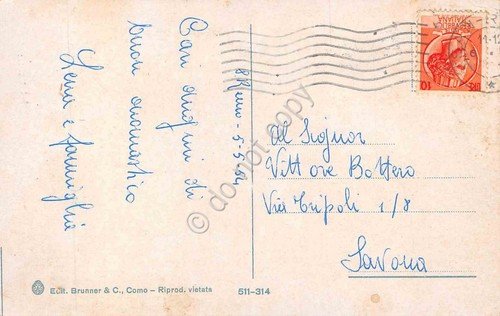 Cari auguri di
buon onomastico
Lena e famiglia
5-5-64
Al Signor
Vittore Bottero
Via Tripoli 1/8
Savona
ITALIANA
10
do not copy
Edit. Brunner & C., Como – Riprod. vietata
511-314